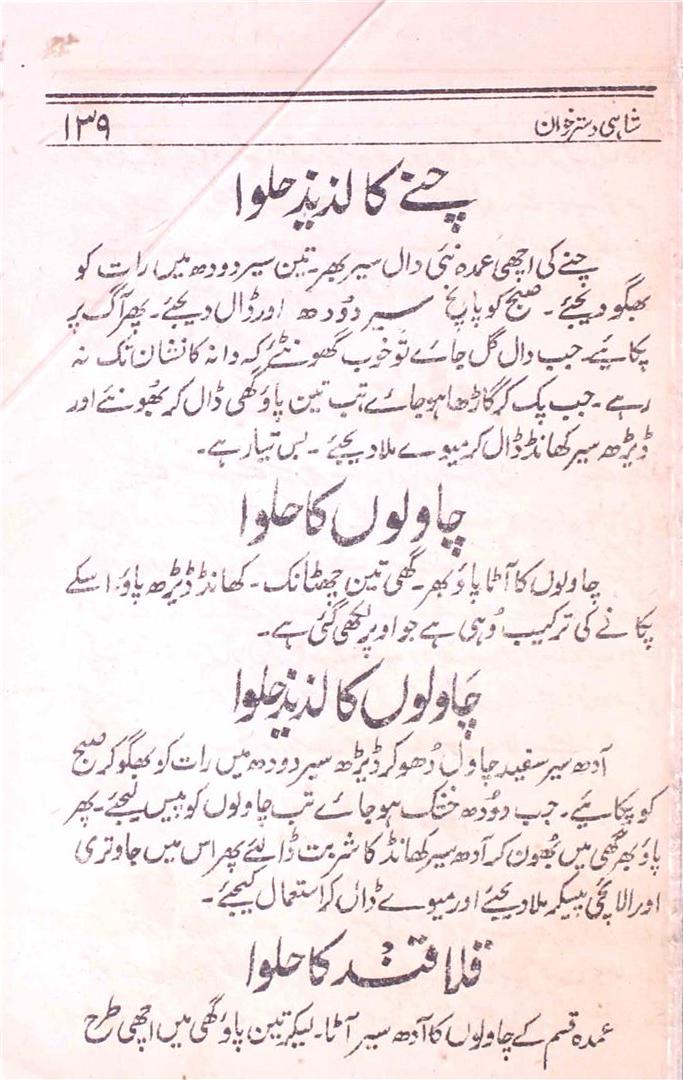 شاہی دسترخوان ۱۳۹
چنے کا لذیذ حلوا
چنے کی اچھی عمدہ نئی دال سیر بھر۔ تین سیر دودھ میں رات کو
بھگو دیجئے۔ صبح کو پانچ سیر دُودھ اور ڈال دیجئے۔ پھر آگ پر
پکایئے۔ جب دال گل جائے تو خوب گھونٹئے کہ دانہ کا نشان تک نہ
رہے۔ جب پک کر گاڑھا ہو جائے تب تین پاؤ گھی ڈال کر بھُونئے اور
ڈیڑھ سیر کھانڈ ڈال کر میوے ملا دیجئے۔ بس تیار ہے۔
چاولوں کا حلوا
چاولوں کا آٹا پاؤ بھر۔ گھی تین چھٹانک۔ کھانڈ ڈیڑھ پاؤ۔ اسکے
پکانے کی ترکیب وُہی ہے جو اوپر لکھی گئی ہے۔
چاولوں کا لذیذ حلوا
آدھ سیر سفید چاول دُھو کر ڈیڑھ سیر دودھ میں رات کو بھگو کر صبح
کو پکایئے۔ جب دُودھ خشک ہو جائے تب چاولوں کو پیس لیجئے۔ پھر
پاؤ بھر گھی میں بھُون کر آدھ سیر کھانڈ کا شربت ڈالئے پھر اس میں جاوتری
اور الائچی پیسکر ملا دیجئے اور میوے ڈال کر استعمال کیجئے۔
قلاقند کا حلوا
عمدہ قسم کے چاولوں کا آدھ سیر آٹا۔ لیکر تین پاؤ گھی میں اچھی طرح